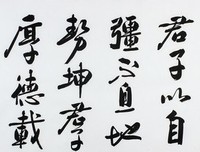 君子以自
彊不息地
勢坤君子
厚德載